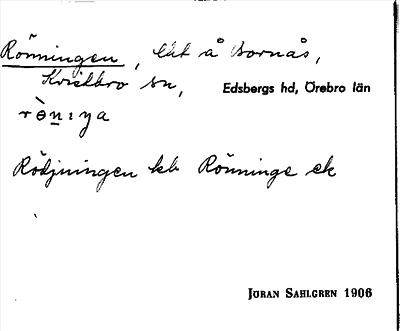 Rönningen, lht å Bornås,
Kvistbro sn, Edsbergs hd, Örebro län
rö̀nıŋa
Rödjningen kb Rönninge ek
JÖRAN SAHLGREN 1906